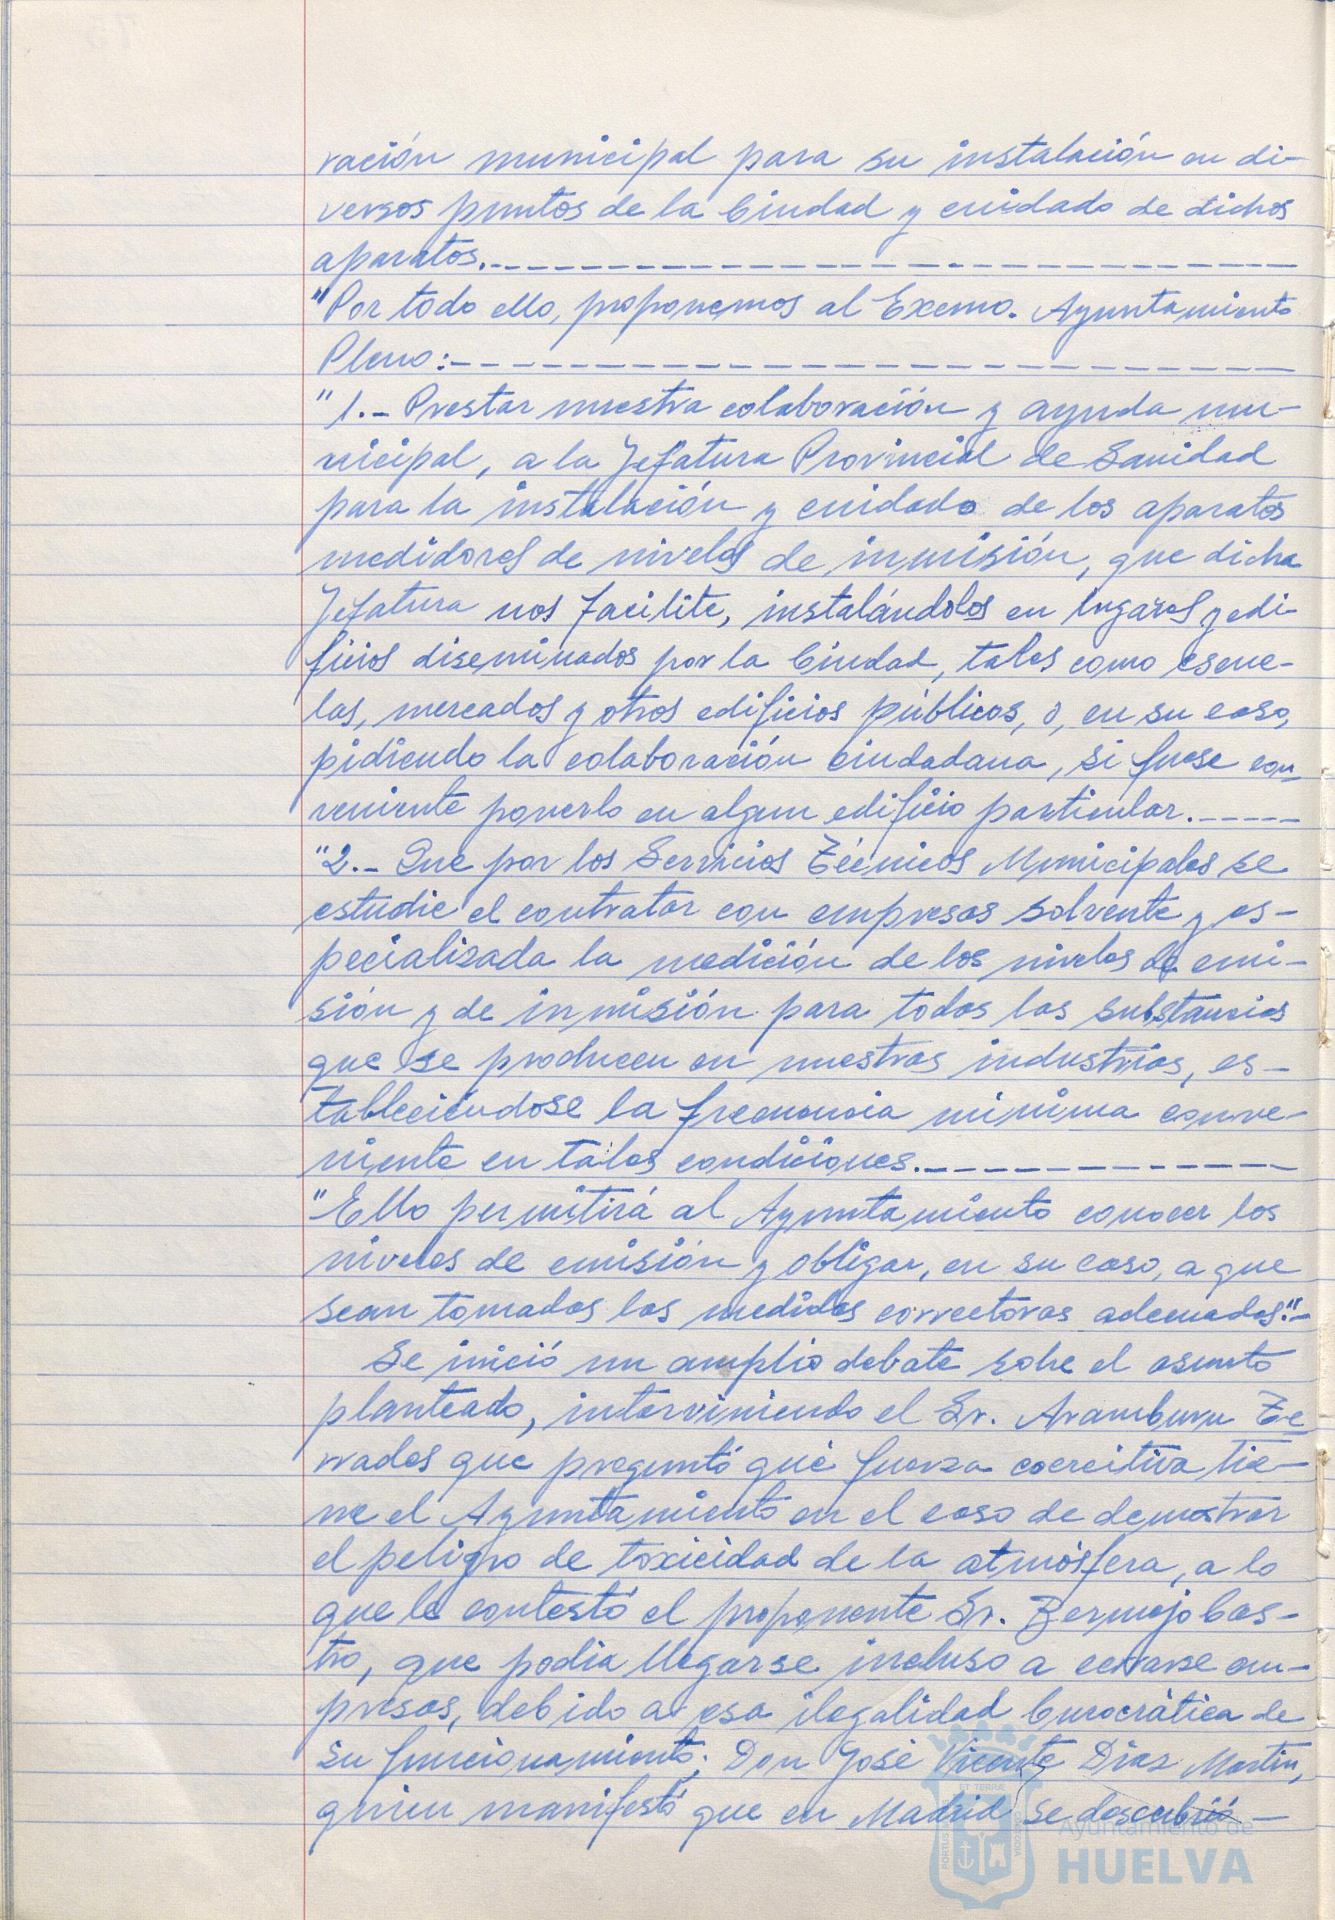 ración municipal para su instalación en di-
versos puntos de la Ciudad y cuidado de dichos
aparatos.
"Por todo ello, proponemos al Excmo. Ayuntamiento
Pleno:
"1.- Prestar nuestra colaboración y ayuda mu-
nicipal, a la Jefatura Provincial de Sanidad
para la instalación y cuidado de los aparatos
medidores de niveles de inmisión, que dicha
Jefatura nos facilite, instalándolos en lugares y edi-
ficios diseminados por la Ciudad, tales como escue-
las, mercados y otros edificios públicos, o, en su caso,
pidiendo la colaboración ciudadana, si fuese con-
veniente ponerlo en algun edificio particular.
"2.- Que por los Servicios Técnicos Municipales se
estudie el contratar con empresas solvente y es-
pecializada la medición de los niveles de emi-
sión y de inmisión para todas las substancias
que se producen en nuestras industrias, es-
tableciéndose la frecuencia mínima conve-
niente en tales condiciones.
"Ello permitirá al Ayuntamiento conocer los
niveles de emisión y obligar, en su caso, a que
sean tomadas las medidas correctoras adecuadas."-
Se inició un amplio debate sobre el asunto
planteado, interviniendo el Sr. Aramburu Te-
rrades que preguntó qué fuerza coercitiva tie-
ne el Ayuntamiento en el caso de demostrar
el peligro de toxicidad de la atmósfera, a lo
que le contestó el proponente Sr. Bermejo Cas-
tro, que podía llegarse incluso a cerrarse em-
presas, debido a esa ilegalidad burocrática de
su funcionamiento; Don José Vicente Díaz Martín,
quien manifestó que en Madrid se descubrió -
Ayuntamiento de
HUELVA